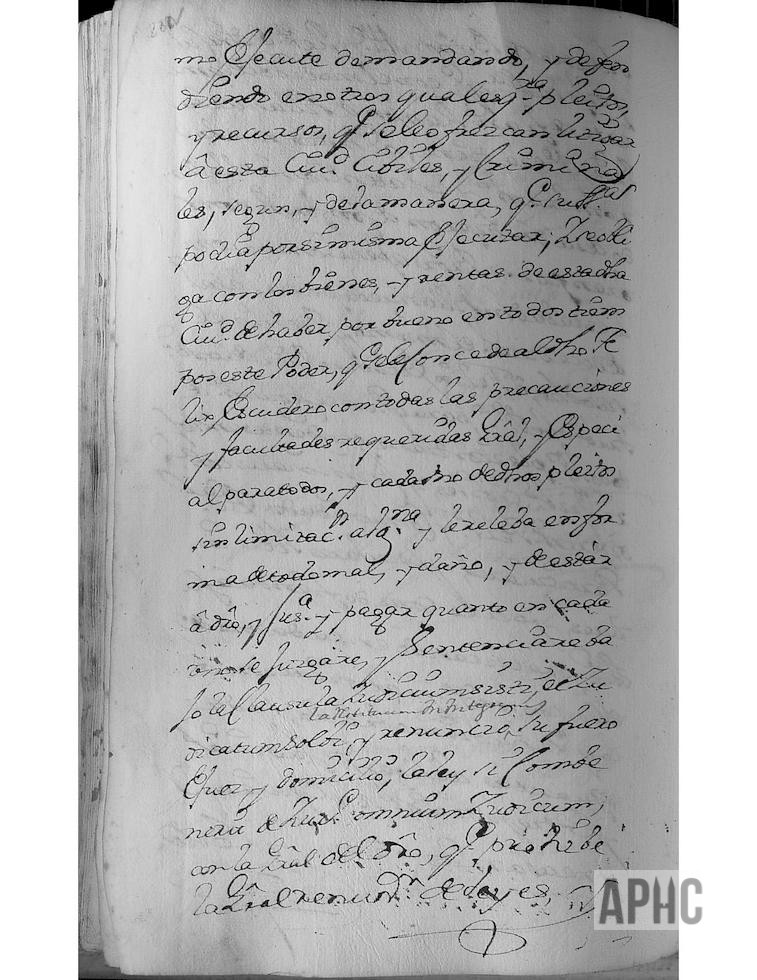 mo Ejecute demandando, y defen
diendo en otros qualesq.ra pleitos,
y recursos, q.e se le ofrezcan litigar
â esta Ciu.d Cibiles, y Crimina
les, segun, y de la manera, q.e su S.ria
podia por si misma Ejecutar; Y se obli
ga con los bienes, y rentas de esta dha
Ciu.d de haber por bueno en todos tiem
pos este Poder, q.e se le Concede al dho Fe
lix Escudero con todas las precauciones
y facultades requeridas Gral, y Especi
al para todos, y cada uno de dhos pleitos
sin limitac.n alg.na y le releba en for
ma de todo mal, y daño, y de estàr
â dro, y Jus.a y pagar quanto en cada
uno se Juzgàre, y Sentenciàre ba
jo la Clausula Iudicium sisti, et Iu
la Restitucion In Integrum
dicatum solvi, y renunciò su fuero
Juez, y domicilio, la ley si Combe
nerit de Jurisd. omnium Iudicum,
con la Gral del dro, q.e prohibe
la Gral renun.on de leyes,
APHC